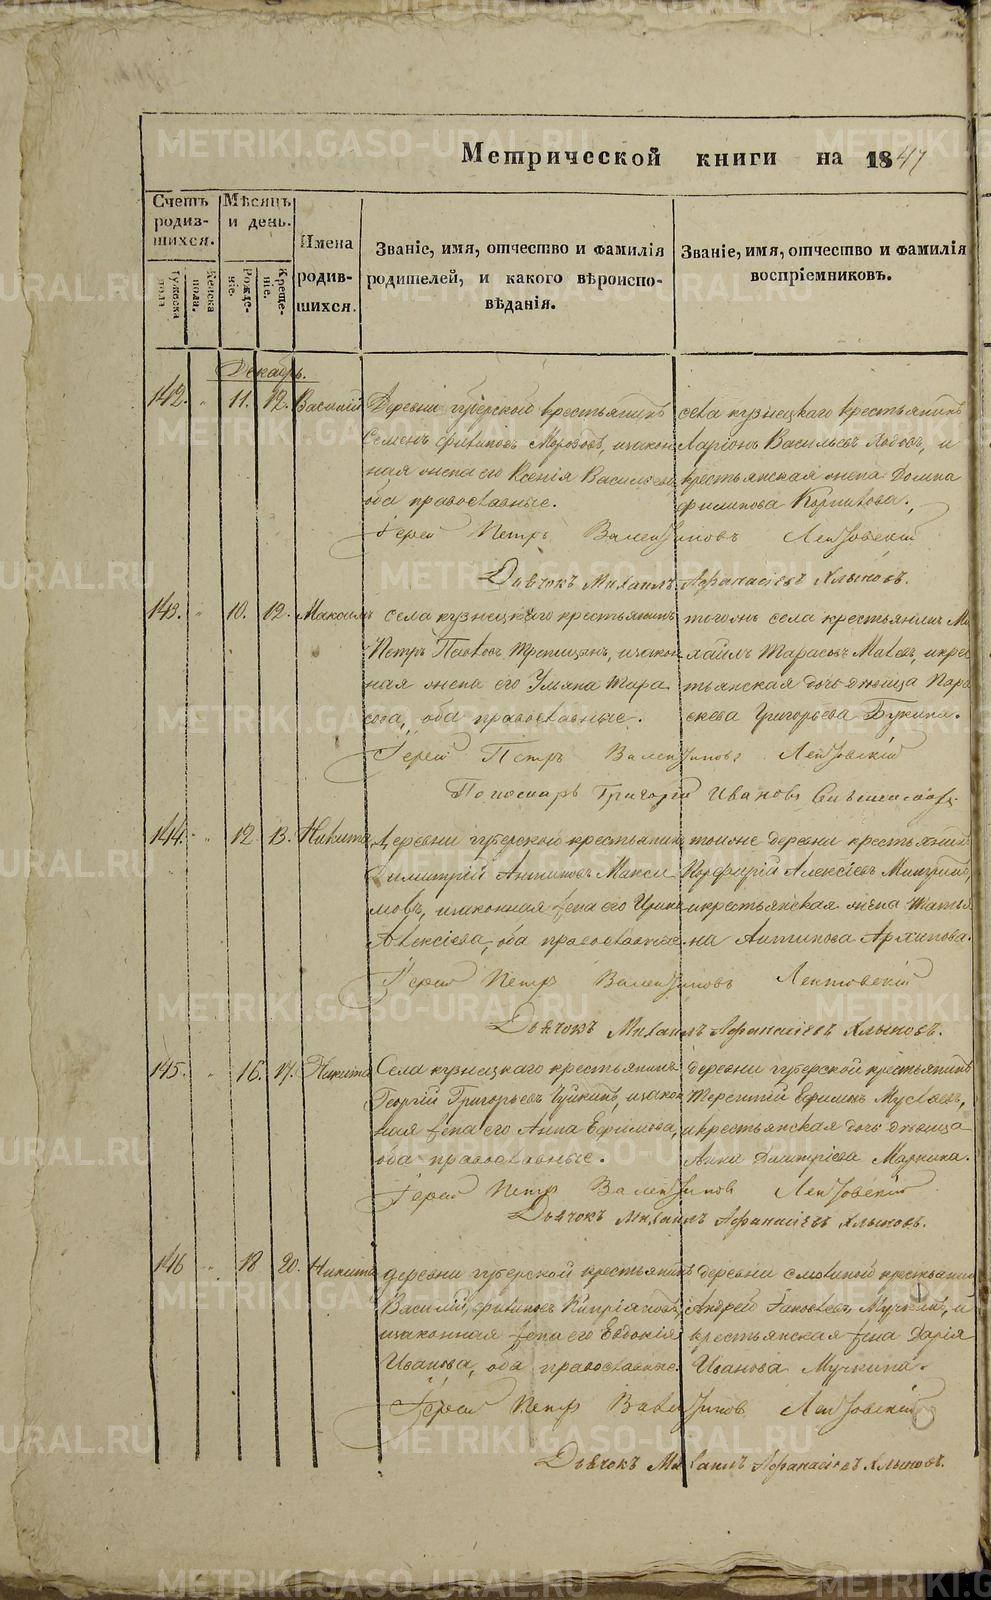 Метрической книги на 1847
Счетъ родив-шихся.
Мѣсяцъ и день.
Имена родив-шихся.
Званіе, имя, отчество и фамилія родителей, и какого вѣроиспо-вѣданія.
Званіе, имя, отчество и фамилія воспріемниковъ.
Мужеска пола
Женска пола.
Рожде-ніе.
Креще-ніе.
Декабрь.
142. " 11. 12. Василій
Деревни губерской крестьянинъ
Семенъ Филиповъ Морозовъ, изакон
ная жена его Ксенія Васильева
оба православные.
села кузнецкаго крестьянинъ
Ларіонъ Васильевъ, и
крестьянская жена Домна
филипова
Іерей Петръ Валентиновъ Лентовскій
Дьячокъ Михаилъ Афанасіевъ Хлыновъ.
143. " 10. 12. Максимъ
села кузнецкаго крестьянинъ
Петръ Павловъ, изакон
ная жена его Ульяна Тара
сова, оба православные.
тогожъ села крестьянинъ Ми
хаилъ Тарасовъ, икрес
тьянская дочь дѣвица Пара
скева Григорьева Букина.
Іерей Петръ Валентиновъ Лентовскій
Пономарь Григорій Ивановъ
144. " 12 13. Никита
Деревни губерской крестьянин
Димитрій Антиповъ Макси
мовъ, изаконная жена его Ирина
Алексіева, оба православные
тойже деревни крестьянинъ
Порфирій Алексіевъ
икрестьянская жена Татья
на Антипова Архипова.
Іерей Петръ Валентиновъ Лентовскій
Дьячокъ Михаилъ Афанасіевъ Хлыновъ.
145. " 16. 17. Никита
Села кузнецкаго крестьянинъ
Георгій Григорьевъ Чуйкинъ, изакон
ная жена его Анна Ефимова,
оба православные.
деревни губерской крестьянинъ
Терентій Ефимовъ
икрестьянская дочь дѣвица
Анна Димитріева Маркина.
Іерей Петръ Валентиновъ Лентовскій
Дьячокъ Михаилъ Афанасіевъ Хлыновъ.
146 " 18 20. Никита
деревни губерской крестьянинъ
Василій Филиповъ Кипріяновъ,
изаконная жена его Евдокія
Иванова, оба православные.
деревни смолиной крестьянинъ
Андрей Яковлевъ Мучкинъ, и
крестьянская жена Дарія
Иванова Мучкина.
Іерей Петръ Валентиновъ Лентовскій
Дьячокъ Михаилъ Афанасіевъ Хлыновъ.
METRIKI.GASO-URAL.RU